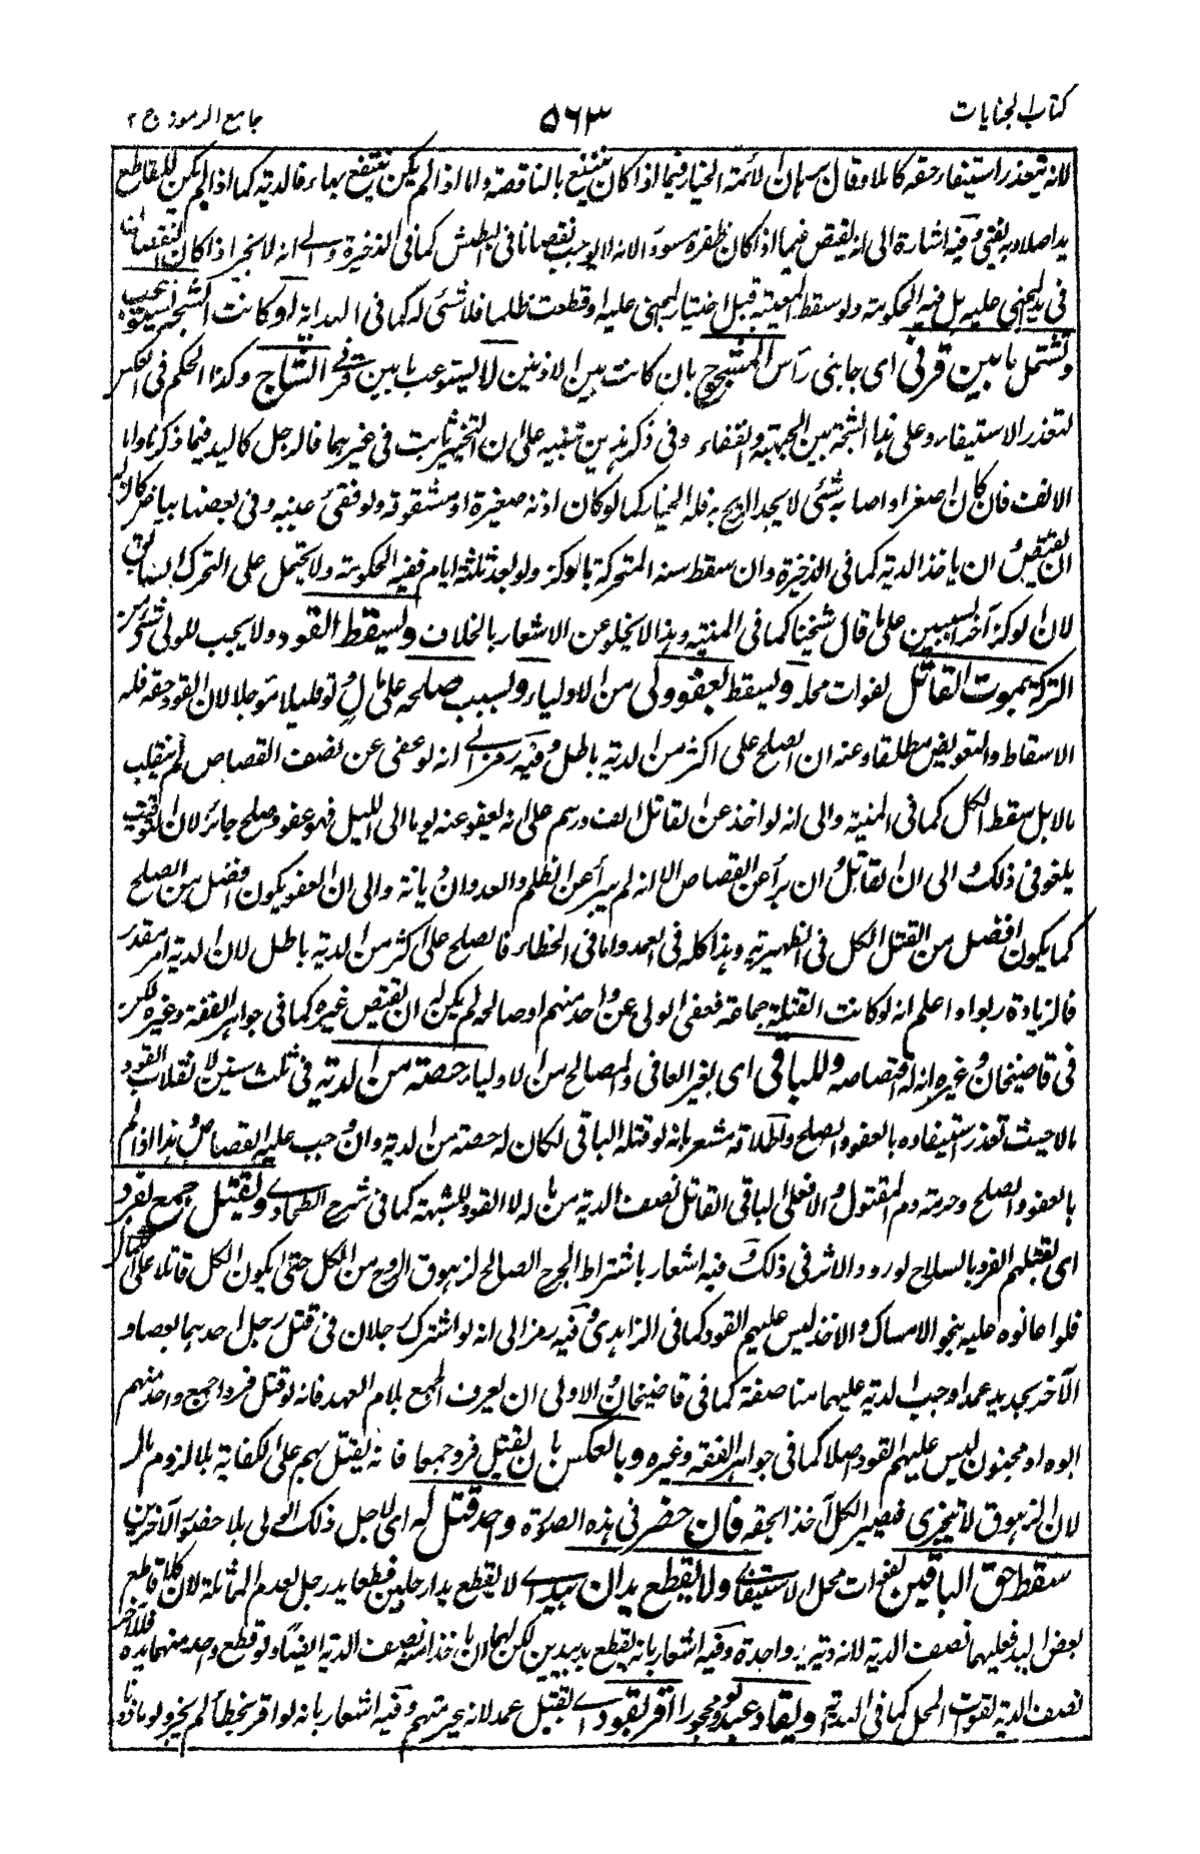 كتاب الجنايات
٥٦٣
جامع الرموز ج ٢
لانه يتعذر استيفاء حقه كاملا وقال برهان الائمة الخيار فيما اذا كان ينتفع بالناقصة واما اذا لم يكن ينتفع بها فالدية كما اذا لم يكن للقاطع
يد اصلا وبه يفتى وفيه اشارة الى انه يقتص فيما اذا كان ظفره مسودا لانه لا يوجب نقصانا فى البطش كما فى الذخيرة والى انه لا يخير اذا كان النقصان
فى يد المجنى عليه بل فيه الحكومة ولو سقط المعيبة قبل اختيار المجنى عليه او قطعت ظلما فلا شئ له كما فى الهداية او كانت الشجة تستوعب
وتشتمل ما بين قرنى اى جانبى رأس المشجوج بان كانت بين الاذنين لا يستوعب ما بين قرنى الشاج وكذا الحكم فى العكس
لتعذر الاستيفاء وعلى هذا الشجة بين الجبهة والقفاء وفى ذكر هذين تنبيه على ان التخيير ثابت فى غيرهما فالرجل كاليد فيما ذكرنا واما
الانف فان كان اصغر او اصابه شئ لا يجد الريح به فله الخيار كما لو كان اذنه صغيرة او مشقوقة ولو فقئ عينه وفى بعضها بياض كان له
ان يقتص وان ياخذ الدية كما فى الذخيرة وان سقط سنه المتحركة بالوكز ولو بعد ثلثة ايام ففيه الحكومة ولا يحتمل على التحرك السابق
لان الوكز آخر السببين على ما قال شيخنا كما فى المنية وهذا لا يخلو عن الاشعار بالخلاف ويسقط القود ولا يجب للولى شئ من
التركة بموت القاتل لفوات محله ويسقط بعفو ولى من الاولياء وبسبب صلحه على مال ولو قليلا مؤجلا لان القود حقه فله
الاسقاط والتعويض مطلقا وعنه ان الصلح على اكثر من الدية باطل وفيه رمز الى انه لو عفى عن نصف القصاص لم ينقلب
مالا بل سقط الكل كما فى المنية والى انه لو اخذ عن القاتل الف درهم على انه يعفو عنه يوما الى الليل فهو عفو وصلح جائز لان التوقيت
يلغو فى ذلك والى ان القاتل وان برأ عن القصاص الا انه لم يبرأ عن الظلم والعدوان ديانة والى ان العفو يكون افضل من الصلح
كما يكون افضل من القتل الكل فى الظهيرية وهذا كله فى العمد واما فى الخطاء فالصلح على اكثر من الدية باطل لان الدية امر مقدر
فالزيادة ربوا واعلم انه لو كانت القتلة جماعة فعفى الولى عن واحد منهم او صالحه لم يكن له ان يقتص غيره كما فى جواهر الفقه وغيره لكن
فى قاضيخان وغيره انه له اقتصاصه وللباقى اى لغير العافى والمصالح من الاولياء حصته من الدية فى ثلث سنين لانقلاب القود
مالا حيث تعذر استيفاوه بالعفو والصلح واطلاقه مشعر بانه لو قتله الباقى لكان له حصته من الدية وان وجب عليه القصاص وهذا اذا لم
بالعفو والصلح وحرمة دم المقتول والا فعلى الباقى القاتل نصف الدية من ماله لا القود للشبهة كما فى شرح الطحاوى ويقتل جمع بفرد
اى بقتلهم الفرد بالسلاح لورود الاثر فى ذلك وفيه اشعار باشتراط الجرح الصالح لزهوق الروح من الكل حتى يكون الكل قاتلا على
فلو اعانوه عليه بنحو الامساك والاخذ ليس عليهم القود كما فى الزاهدى وفيه رمز الى انه لو اشترك رجلان فى قتل رجل احدهما بعصا و
الآخر بحديد عمدا وجب الدية عليهما مناصفة كما فى قاضيخان والاولى ان يعرف الجمع بلام العهد فانه لو قتل فردا جمع واحد منهم
ابوه او مجنون ليس عليهم القود اصلا كما فى جواهر الفقه وغيره وبالعكس بان يقتل فرد جمعا فانه يقتل بهم على الكفاية بلا لزوم مال
لان الزهوق لا يتجزى فيصير الكل آخذا بحقه فان حضر فى هذه الصورة واحد قتل له اى لاجل ذلك الولى بلا حضور الآخرين
سقط حق الباقين لفوات محل الاستيفاء ولا يقطع يدان بيد اى لا يقطع يدا رجلين قطعا يد رجل لعدم المماثلة لان كلا قاطع
بعض اليد فعليهما نصف الدية لانه دية يد واحدة وفيه اشعار بانه يقطع يد بيدين لكن لهما ان ياخذا منه نصف الدية ايضا ولو قطع واحد منهما يده فللآخر
نصف الدية لفوات المحل كما فى الهداية ويقاد عبد ولو محجورا اقر بقود اى بقتل عمد لانه غير متهم وفيه اشعار بانه لو اقر بخطأ لم يجز ولو ماذونا